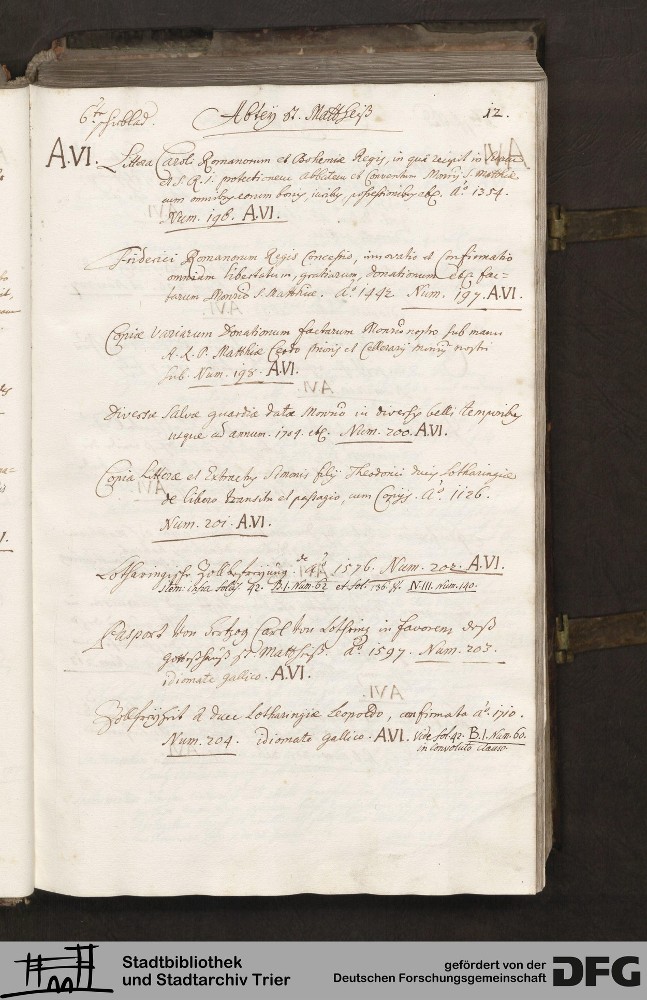 6te Schiblad. Abtey St. Mattheiß 12.
A.VI. Littera Caroli Romanorum et Bohemiæ Regis, in quâ recipit in
et S. R. I. protectionem Abbatem et Conventum Monrij S. Matthiæ
cum omnibus eorum bonis, iuribus, possessionibus etc. Aō 1354.
Num. 196. A.VI.
Friderici Romanorum Regis Concessio, innovatio et Confirmatio
omnium libertatum, gratiarum, donationum etc. fac-
tarum Monrio S. Matthiæ. Aō 1442. Num. 197. A.VI.
Copiæ variarum Donationum factarum Monrio nostro sub manu
A. R. P. Matthiæ prioris et Cellerarij monrij nostri
sub Num. 198. A.VI.
Diversæ Salvæ guardiæ datæ Monrio in diversis belli temporibus
usque ad annum. 1704. etc. Num. 200. A.VI.
Copia Litteræ et Extractus Simonis filij Theodorici ducis Lotharingiæ
de libero transitu et passagio, cum Copijs. Aō 1126.
Num. 201. A.VI.
Lotharingische Zollbefreijung de Aō 1576. Num. 202. A.VI.
Item: infra folijs 42. B.I. Num. 62 et fol. 136. N.III. Num. 140.
Pasport von Hertzog Carl von Lothring in favorem deß
Gotteßhauß St. Mattheiß. Aō 1597. Num. 203.
idiomate gallico. A.VI.
Zollfreyheit a duce Lotharingiæ Leopoldo, confirmata aō 1710.
Num. 204. idiomate gallico. A.VI. vide fol 42. B.I. Num. 60.
in convoluto clauso.
Stadtbibliothek
und Stadtarchiv Trier
gefördert von der
Deutschen Forschungsgemeinschaft
DFG